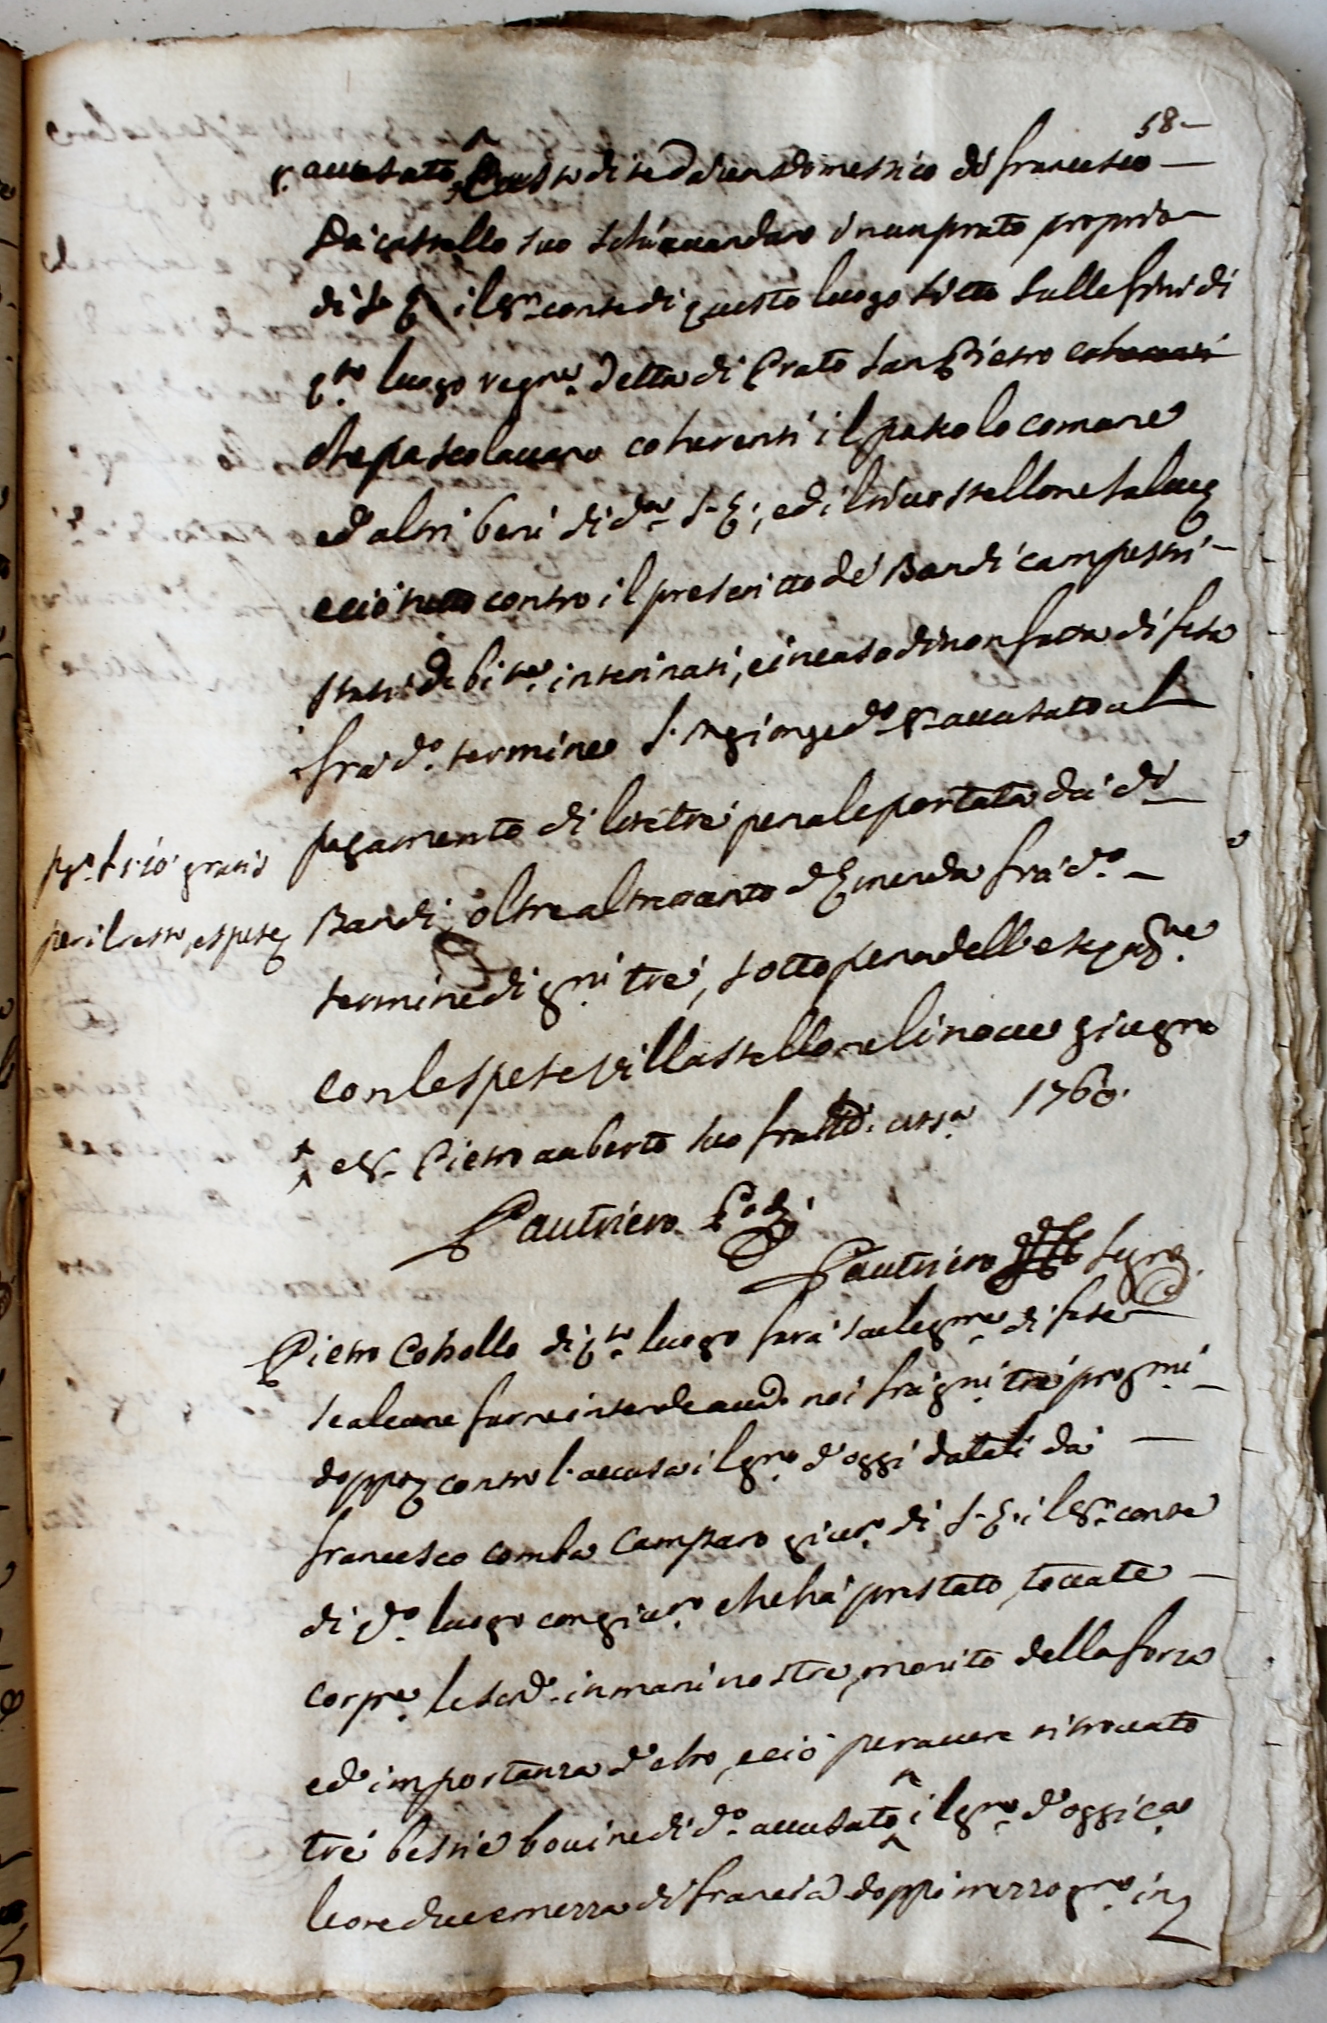 58-
s. accusato custodite da un domestico di francesco
Da castello suo schiavandaro in un prato proprio
di S. E. il Sr. conte di questo luogo sitto sulle fini di
qto. luogo regne. detta di Prato San Pietro
che pascolavano coherenti il pascolo comune
ed altri beni di da. S. E., ed il rivo stellone
e ciò tutto contro il prescritto de Bandi campestri
stati debite. interinati, e in caso di non fatta difesa
fra do. termine s'ingionge do. sr. accusato al
pagamento di lire tre penale portata da di
Bandi, oltre altretanto d'Emenda fra do.
termine di gni. tre, sotto pena dell'esequne.
con le spese Villastellone li nove giugno
1760.
e Sr. Pietro auberto suo fratto.
Pautriero Pod.
Pautriero Segro.
pg. l. 1:10 gratis
per il resto, e spese
Pietro Cohollo di qto. luogo farà sue legme. difese
se alcune farne intende avd. noi fra gni. tre progmi.
doppo contro l'accusa il gno. d'oggi datali da
francesco comba Camparo giuro. di S. E. il Sr. conte
di do. luogo con giuro. che hà prestato, toccate
corpe. le scrd. in mani nostre, monito della forza
ed importanza d'esso, e ciò per avere ritrovato
tre bestie bovine di do. accusato il gno. d'oggi ca.
le ore due e mezza di francia doppo mezzo gno. in